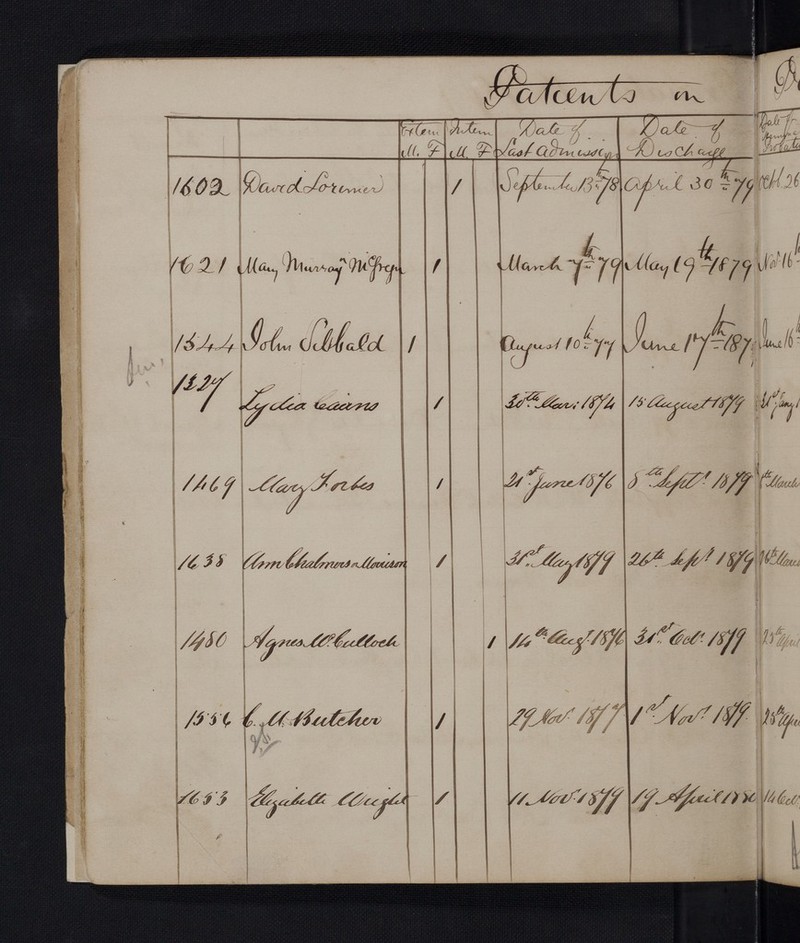 Patients on
Extern Intern Date of Date of Date of
M. F M. F Last admission Discharge Probation
1602 David Lorimer 1 September 13th 78 April 30th 79 Oct 26
1621 Mary Murray n McGregor 1 March 7th 79 May 19th 1879 Nov 16th
1544 John Sibbald 1 August 10th 77 June 17th 187 June 16th
1327 Lydia Cairns 1 30th Mar: 1874 15 August 1879 31st Jany 1
1469 Mary Forbes 1 21st June 1876 8th Sept. 1879 8th March
1638 Ann Chalmers n Morrison 1 31st May 1879 26th Sept 1879 26th March
1480 Agnes McCulloch 1 14th Aug. 1876 31st Oct. 1879 25th April
1556 C. M. Butcher 1 29 Nov. 1877 1st Novr. 1879 25th Apri
1653 Elizabeth Wright 1 11 Nov. 1879 19 April 1880 14 Oct.